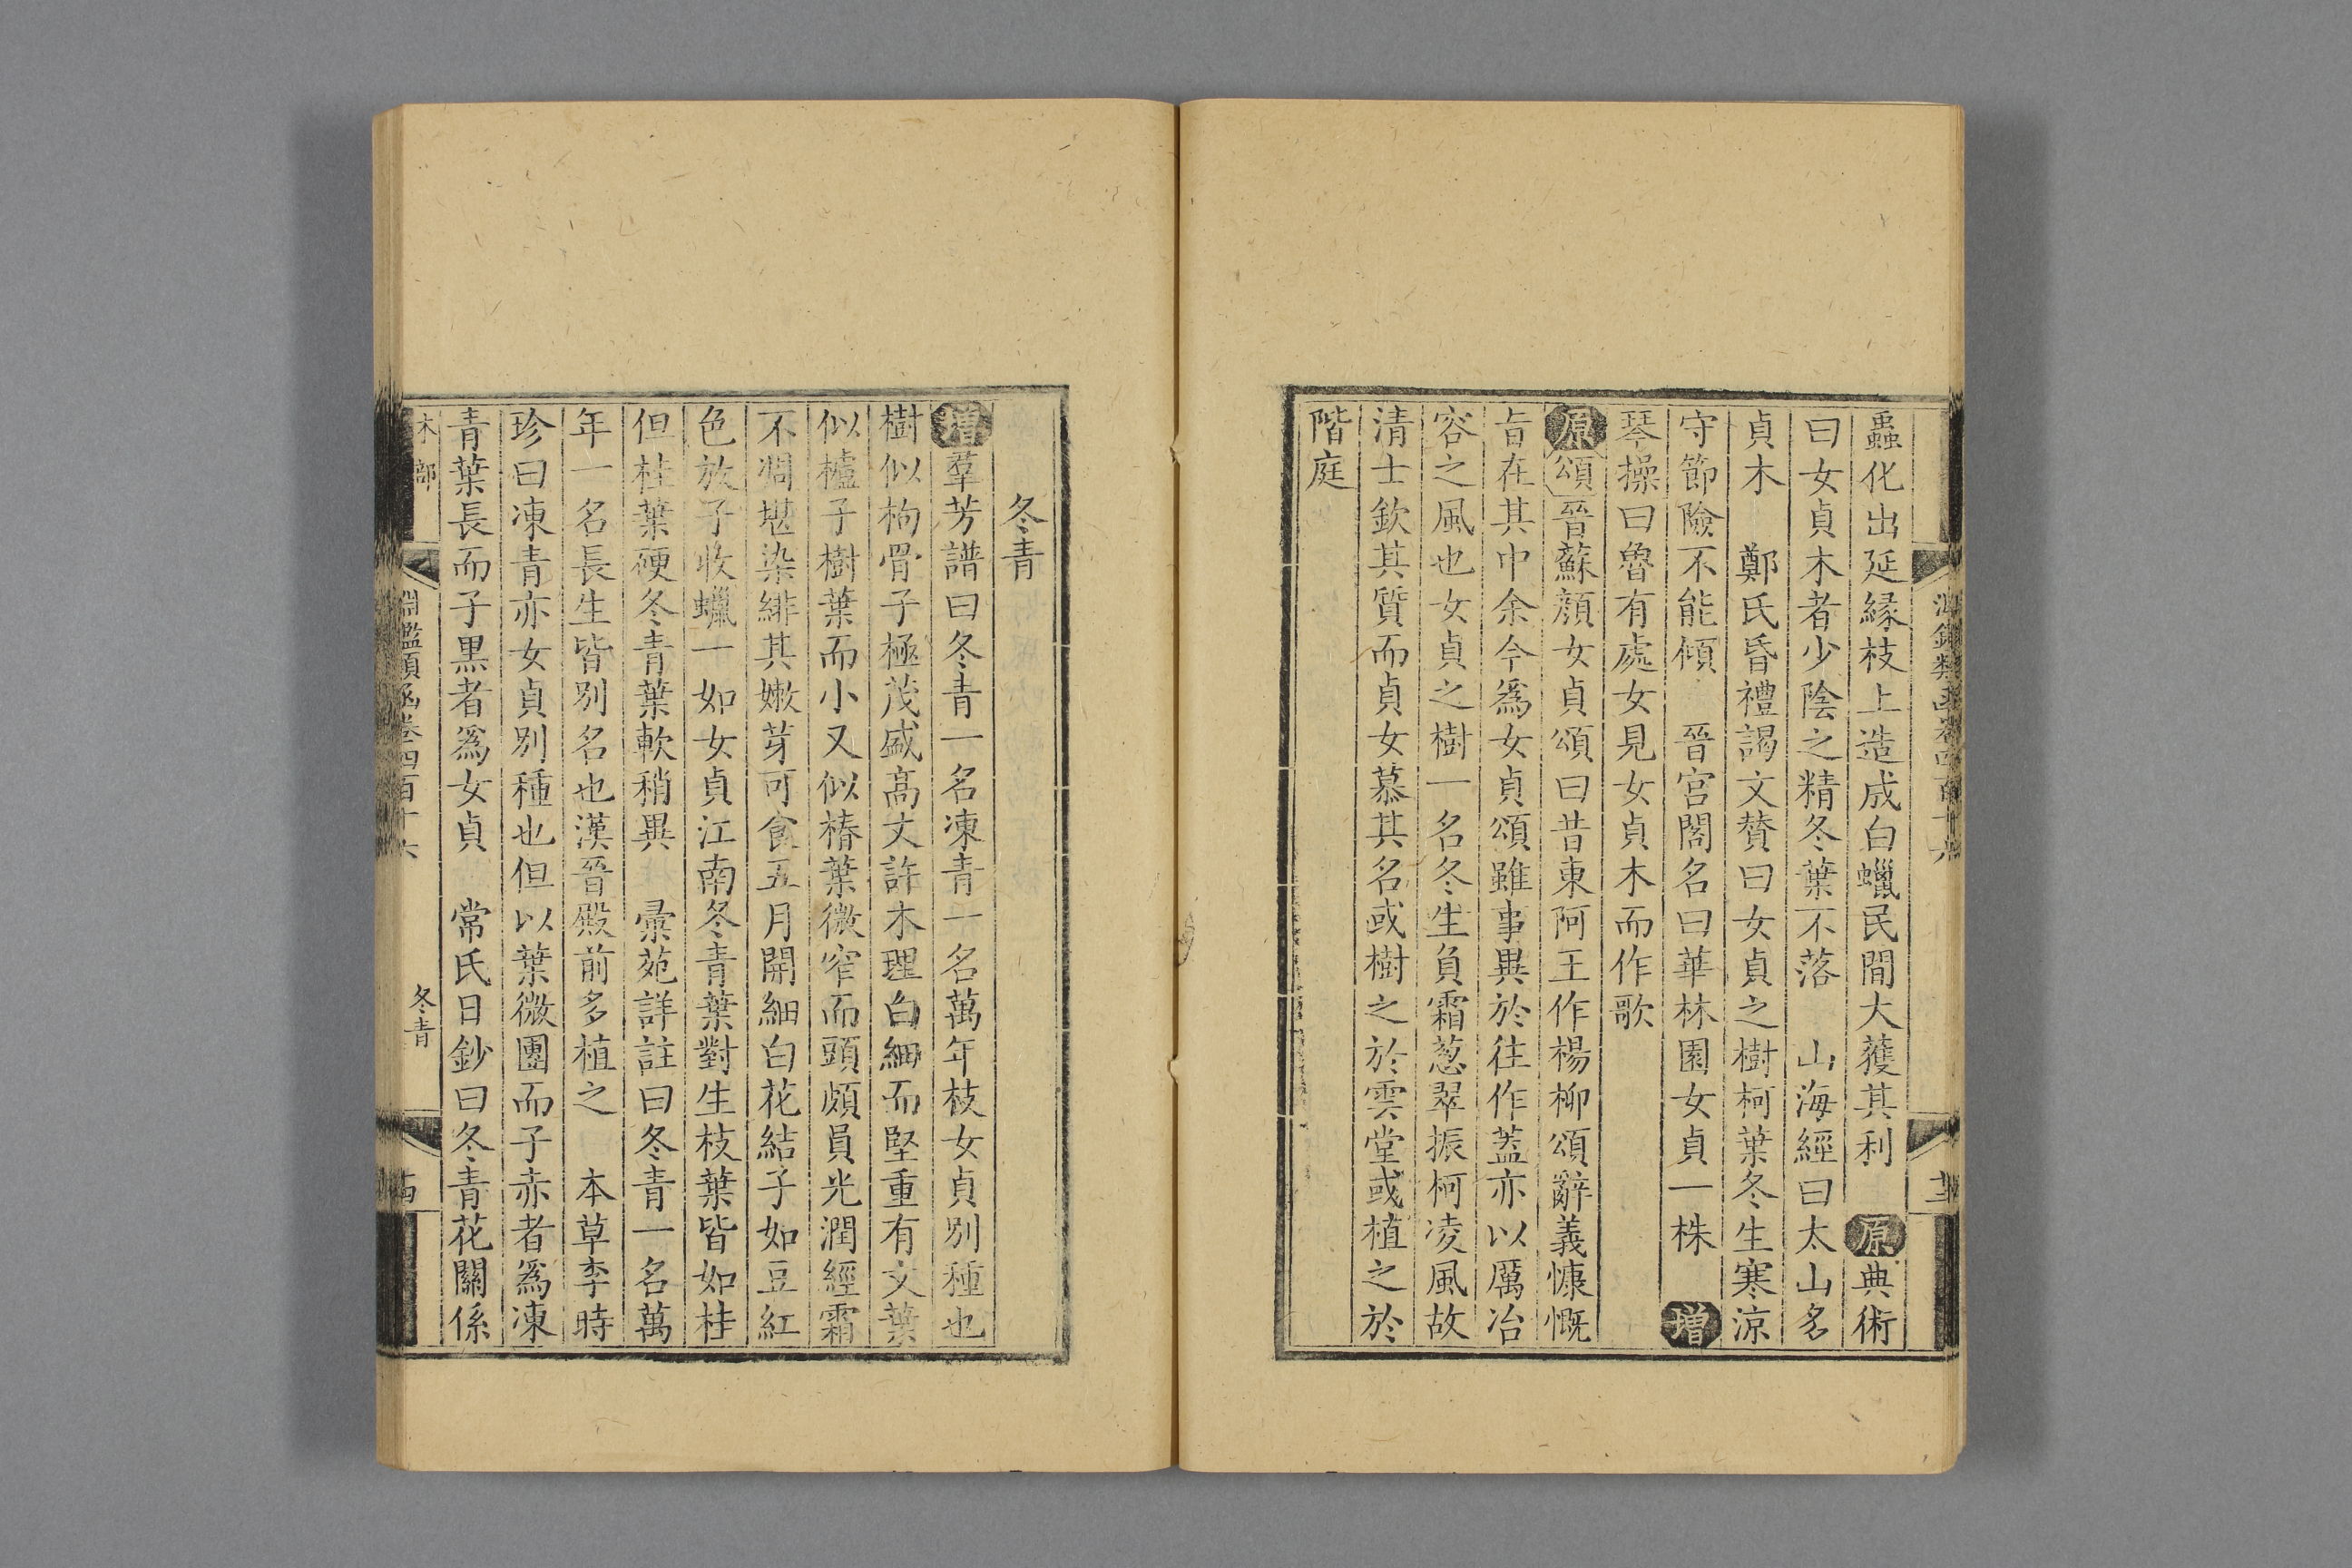 蟲化出延緣枝上造成白蠟民間大獲其利　原典術
曰女貞木者少陰之精冬葉不落　山海經曰太山名
貞木　鄭氏昏禮謁文賛曰女貞之樹柯葉冬生寒涼
守節險不能傾　晉宮閣名曰華林園女貞一株　增
琴操曰魯有處女見女貞木而作歌
原頌晉蘇顏女貞頌曰昔東阿王作楊柳頌辭義慷慨
旨在其中余今爲女貞頌雖事異於往作葢亦以厲冶
容之風也女貞之樹一名冬生負霜葱翠振柯凌風故
清士欽其質而貞女慕其名或樹之於雲堂或植之於
階庭
冬青
增羣芳譜曰冬青一名凍青一名萬年枝女貞別種也
樹似枸骨子極茂盛高丈許木理白細而堅重有文葉
似櫨子樹葉而小又似椿葉微窄而頭頗員光潤經霜
不凋堪染緋其嫩芽可食五月開細白花結子如豆紅
色放子收蠟一如女貞江南冬青葉對生枝葉皆如桂
但桂葉硬冬青葉軟稍異　彙苑詳註曰冬青一名萬
年一名長生皆別名也漢晉殿前多植之　本草李時
珍曰凍青亦女貞別種也但以葉微團而子赤者爲凍
青葉長而子黑者爲女貞　常氏日鈔曰冬青花關係
木部
淵鑑類函卷四百十六
冬青